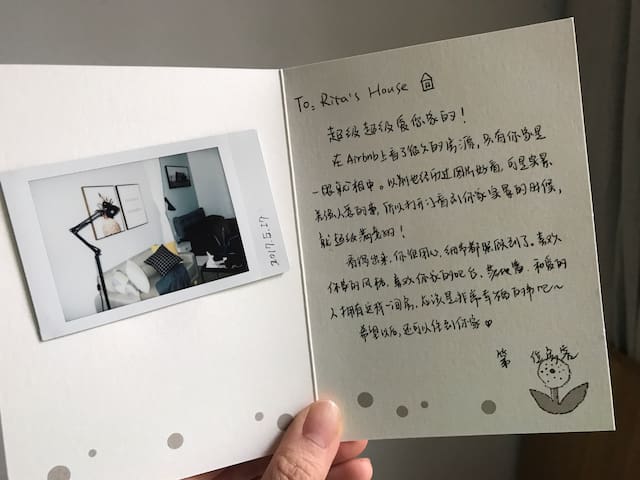 2017.5.17
To: Rita's House
超级超级爱你家的！
在Airbnb上看了很久的房源，只有你家是
一眼就相中。以前也经历过图片好看，可是实景
去很入意的事，所以打开门看到你家实景的时候，
就超级满意的！
看得出来，你很用心，细节都照顾到了。喜欢
你家的风格，喜欢你家的吧台、 和爱的
人拥有这样一间房，应该是非常幸福的事吧～
希望以后，还可以住到你家
第 位房客